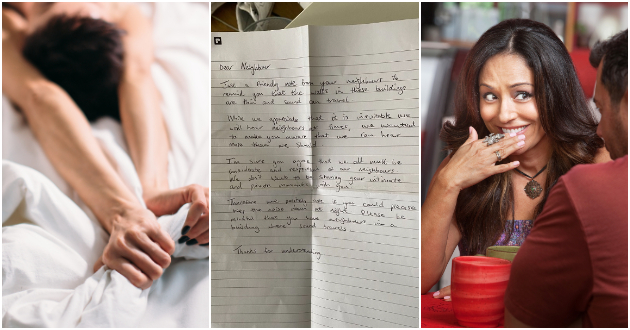 Dear Neighbour
Just a friendly note from your neighbours to
remind you that the walls in these buildings
are thin and sound can travel.
While we appreciate that it is inevitable we
will hear neighbours at times, we wanted
to make you aware that we can hear
more than we should.
I'm sure you agree that we all must be
considerate and respectful of our neighbours.
We don't want to be sharing your intimate
and private moments with you.
Therefore we politely ask if you could please
keep the noise down at night. Please be
mindful that you have neighbours in a
building where sound travels.
Thanks for understanding